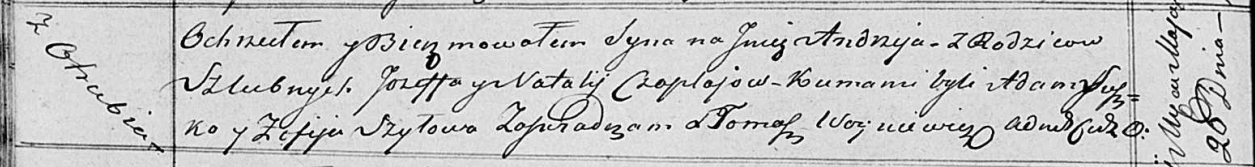 z Otrubia
Ochrzciłem y Bierzmowałem Syna na Jmię Andrzeja - Z Rodzicow
Szlubnych Jozeffa y Natalij Czaplajow - Kumami byli Adam Susz=
ko y Zofija Szyłowa Zaswiadczam X Tomasz Woyniewicz
Dnia 26